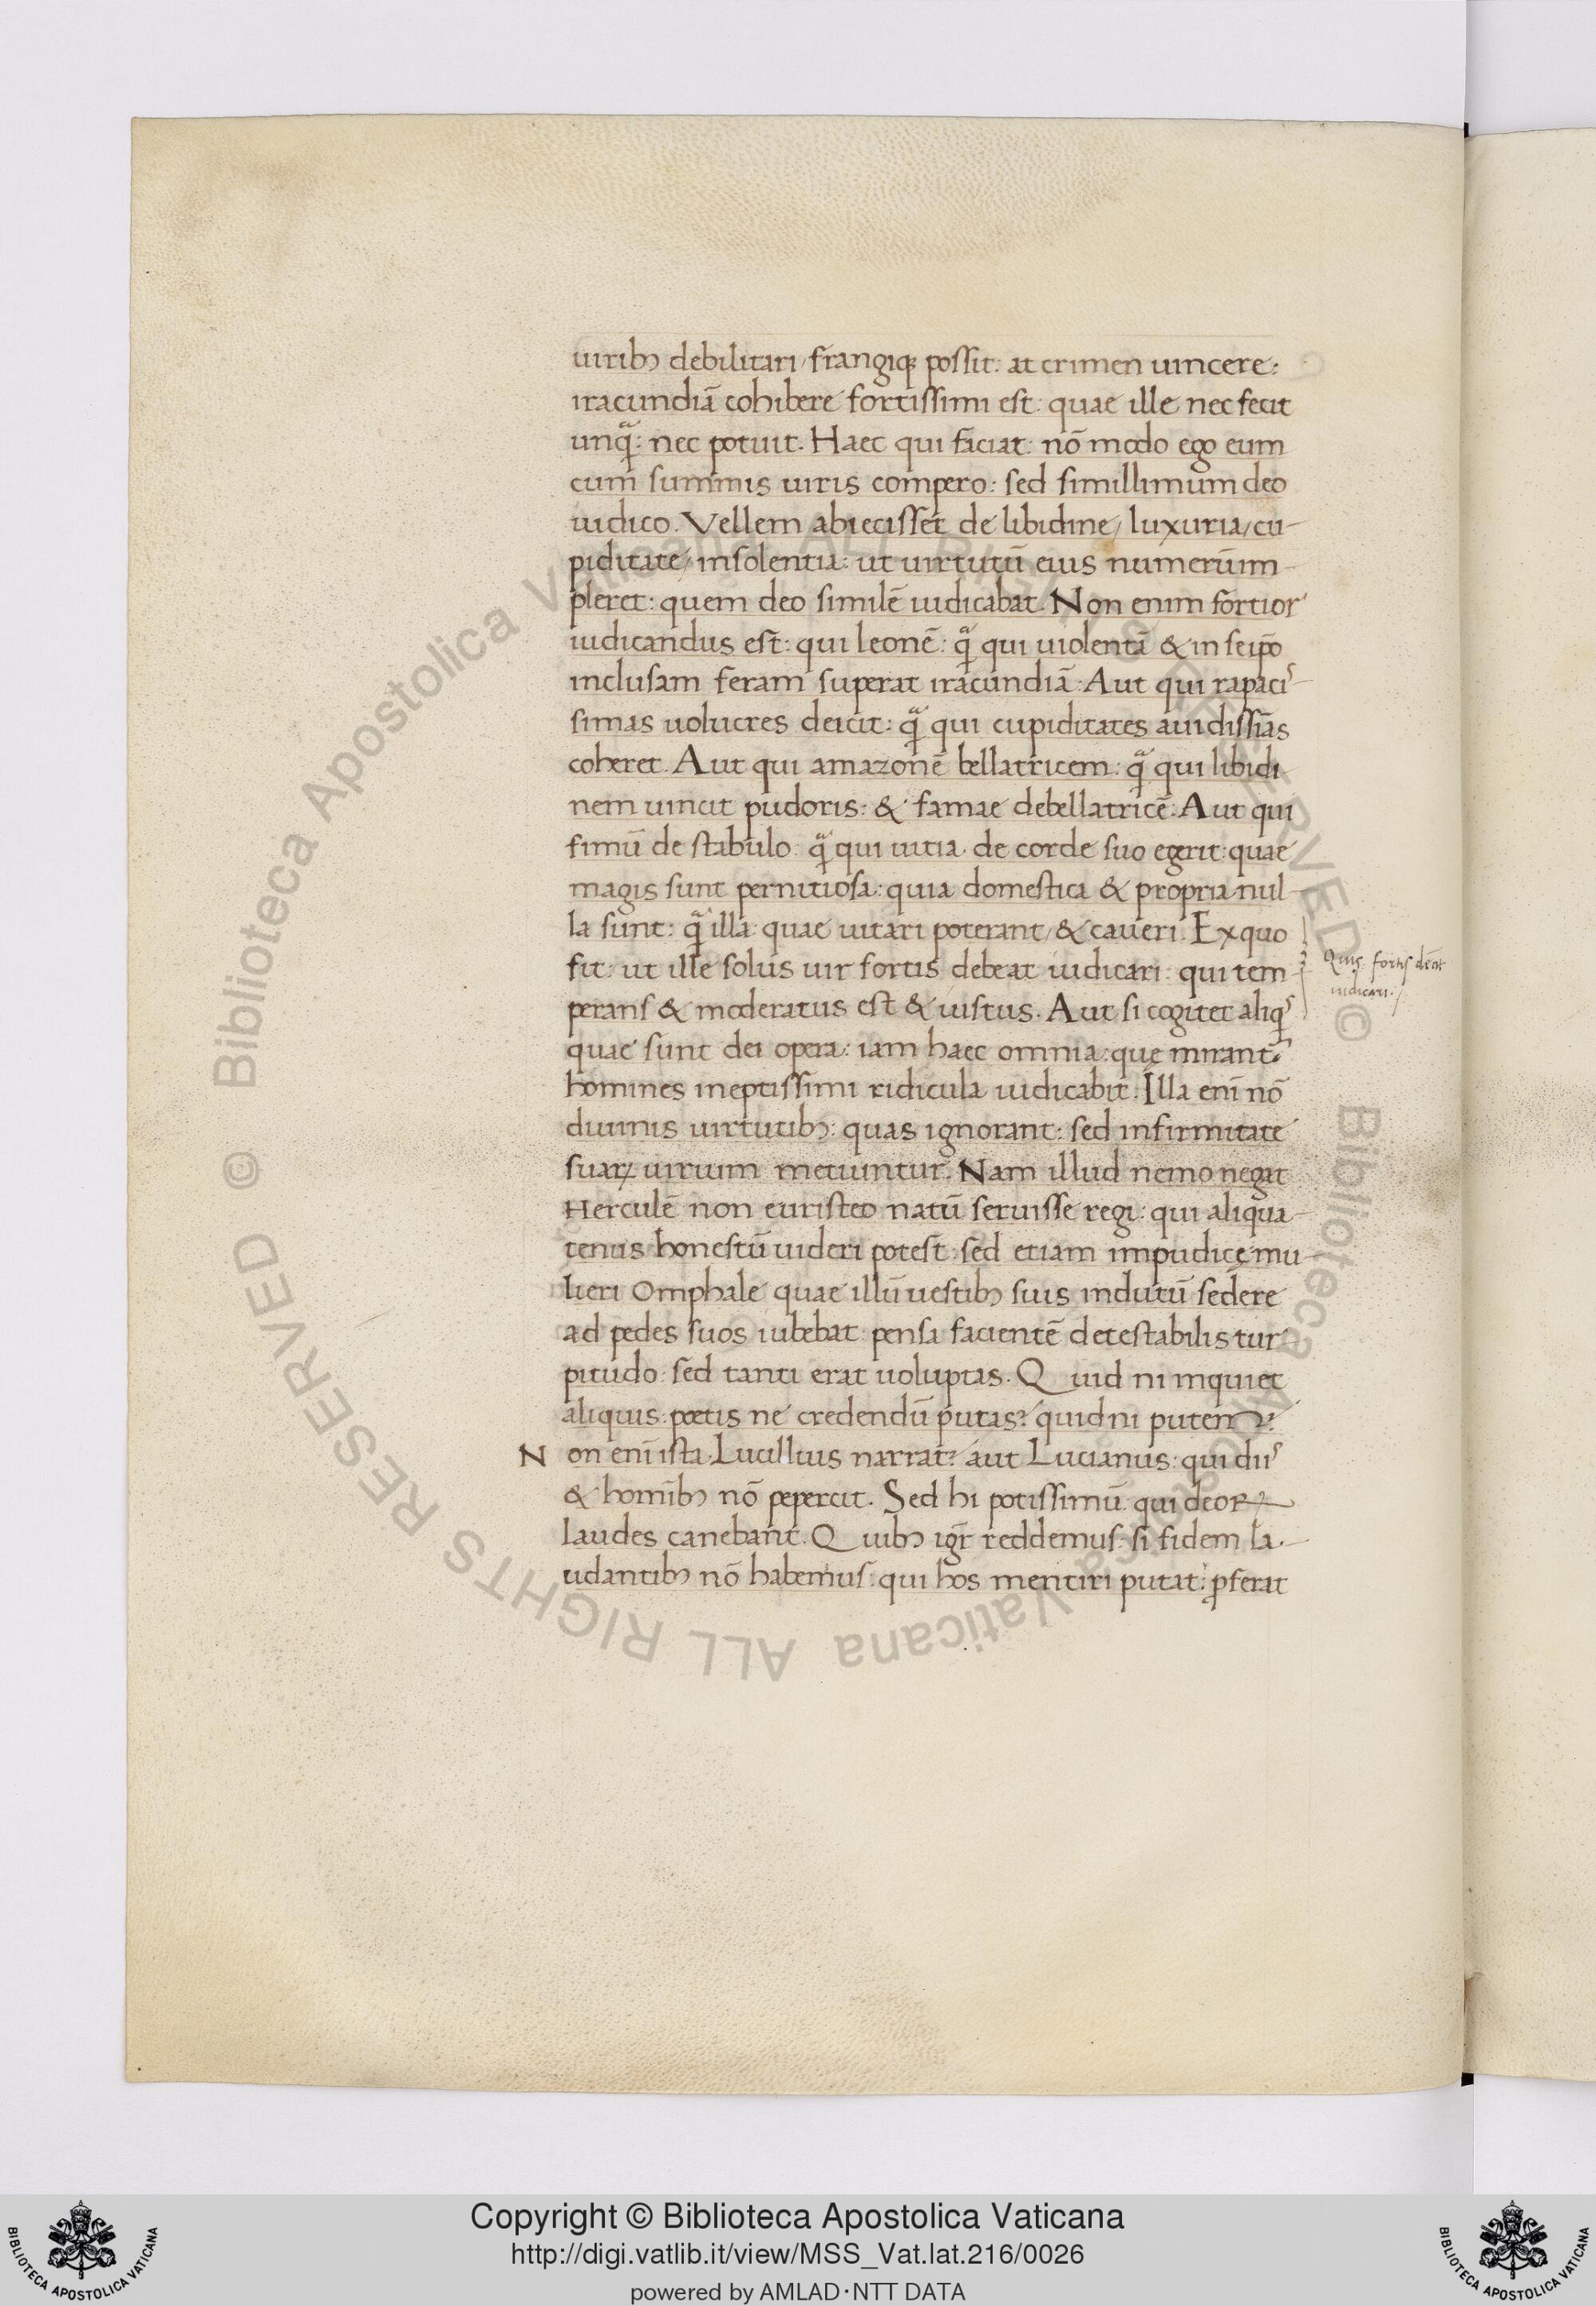 uiribꝫ debilitari / frangiqꝫ possit: at crimen uincere:
iracundiã cohibere fortissimi est: quae ille nec fecit
unq̃: nec potuit. Haec qui faciat: nõ modo ego eum
cum summis uiris compero: sed simillimum deo
iudico. Vellem abiecisset de libidine / luxuria / cu-
piditate / insolentia: ut uirtutũ eius numerum im-
pleret: quem deo similẽ iudicabat. Non enim fortior
iudicandus est: qui leonẽ: q̃ qui uiolentã & in seip̃o
inclusam feram superat iracundiã. Aut qui rapacis-
simas uolucres deicit: q̃ qui cupiditates auidissĩas
coheret. Aut qui amazonẽ bellatricem: q̃ qui libidi
nem uincit pudoris: & famae debellatricẽ. Aut qui
fimũ de stabulo: q̃ qui uitia de corde suo egerit: quae
magis sunt pernitiosa: quia domestica & propria nul-
la sunt: q̃ illa: quae uitari poterant / & caueri. Ex quo
fit: ut ille solus uir fortis debeat iudicari: qui tem-
perans & moderatus est & iustus. Aut si cogitet aliqˢ
quae sunt dei opera: iam haec omnia: quę mirant᷒
homines ineptissimi ridicula iudicabit. Illa enĩ nõ
diuinis uirtutibꝫ: quas ignorant: sed infirmitate
suaꝝ uirium metiuntur. Nam illud nemo negat
Herculẽ non euristeo natũ seruisse regi: qui aliqua-
tenus honestũ uideri potest: sed etiam impudicę mu-
lieri Omphale quae illũ uestibꝫ suis indutũ sedere
ad pedes suos iubebat: pensa facientẽ detestabilis tur-
pitudo: sed tanti erat uoluptas. Quid ni inquiet
aliquis: poetis ne credendũ putas? quid ni putem?
Non enĩ ista Lucillius narrat? aut Lucianus: qui diiˢ
& homĩbꝫ nõ pepercit. Sed hi potissimũ qui deoꝝ
laudes canebant. Quibꝫ igr̃ reddemus: si fidem la-
udantibꝫ nõ habemus: qui hos mentiri putat: ꝓferat
Quis fortis debeat
iudicari.
Copyright © Biblioteca Apostolica Vaticana
http://digi.vatlib.it/view/MSS_Vat.lat.216/0026
powered by AMLAD·NTT DATA
BIBLIOTECA APOSTOLICA VATICANA
BIBLIOTECA APOSTOLICA VATICANA
© Biblioteca Apostolica Vaticana ALL RIGHTS RESERVED
© Biblioteca Apostolica Vaticana ALL RIGHTS RESERVED